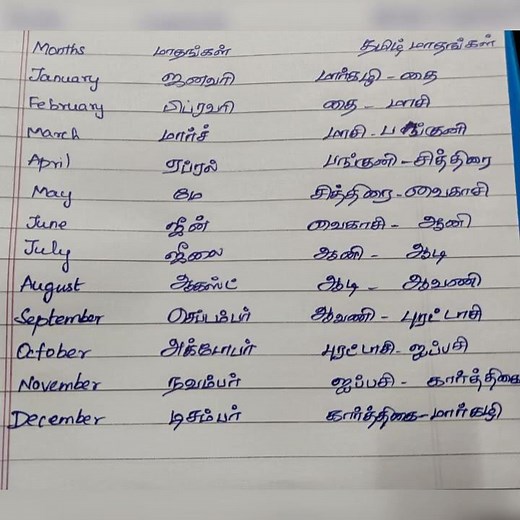 Months மாதங்கள் தமிழ் மாதங்கள்
January ஜனவரி மார்கழி - தை
February பிப்ரவரி தை - மாசி
March மார்ச் மாசி - பங்குனி
April ஏப்ரல் பங்குனி - சித்திரை
May மே சித்திரை - வைகாசி
June ஜீன் வைகாசி - ஆனி
July ஜீலை ஆனி - ஆடி
August ஆகஸ்ட் ஆடி - ஆவணி
September செப்டம்பர் ஆவணி - புரட்டாசி
October அக்டோபர் புரட்டாசி - ஐப்பசி
November நவம்பர் ஐப்பசி - கார்த்திகை
December டிசம்பர் கார்த்திகை - மார்கழி